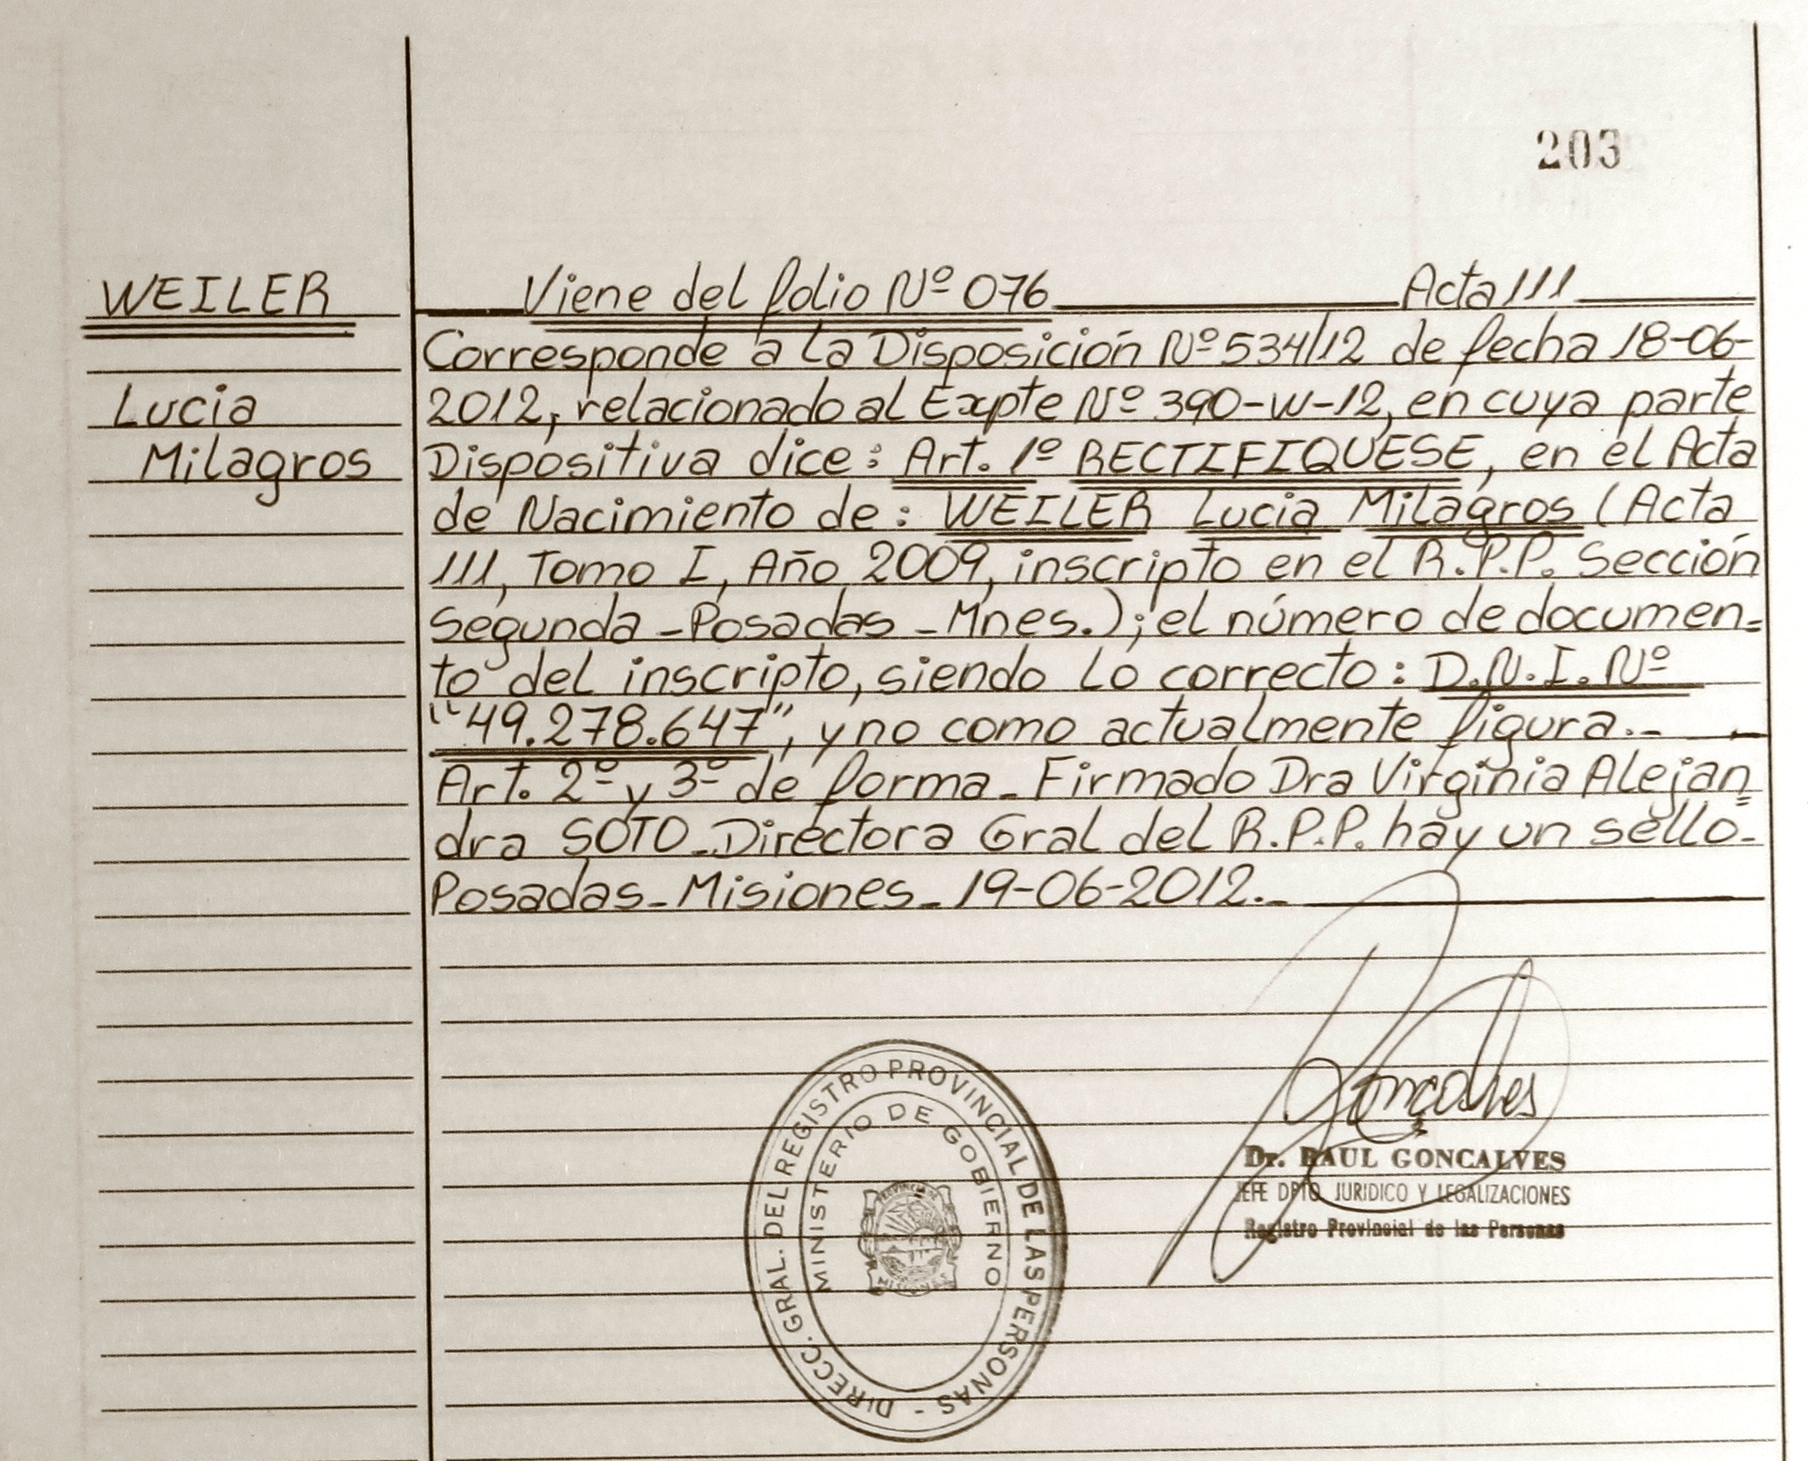 203
WEILER
Lucia
Milagros
Viene del folio Nº 076 Acta 111
Corresponde a la Disposición Nº 534/12 de fecha 18-06-
2012, relacionado al Expte Nº 390-W-12, en cuya parte
Dispositiva dice: Art. 1º RECTIFIQUESE, en el Acta
de Nacimiento de: WEILER Lucia Milagros (Acta
111, Tomo I, Año 2009, inscripto en el R.P.P. Sección
Segunda - Posadas - Mnes.); el número de documen=
to del inscripto, siendo lo correcto: D.N.I. Nº
"49.278.647", y no como actualmente figura.-
Art. 2º y 3º de forma - Firmado Dra Virginia Alejan=
dra SOTO - Directora Gral del R.P.P. hay un sello-
Posadas - Misiones - 19-06-2012.-
Goncalves
Dr. RAUL GONCALVES
JEFE DPTO JURIDICO Y LEGALIZACIONES
Registro Provincial de las Personas
DIRECC. GRAL. DEL REGISTRO PROVINCIAL DE LAS PERSONAS -
MINISTERIO DE GOBIERNO
PROVINCIA DE
MISIONES